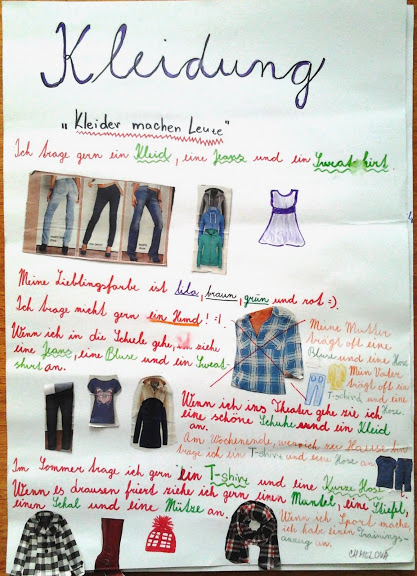 Kleidung
„Kleider machen Leute"
Ich trage gern ein Kleid, eine Jeans und ein Sweatshirt.
Meine Lieblingsfarbe ist lila, braun, grün und rot :).
Ich trage nicht gern ein Hemd! :(.
Wenn ich in die Schule gehe, ziehe
eine Jeans, eine Bluse und ein Sweat-
shirt an.
Meine Mutter
trägt oft eine
Bluse und eine Hose
Mein Vater
trägt oft ein
T-shirt und eine
Hose.
Wenn ich ins Theater gehe zie ich
eine schöne Schuhe und ein Kleid
an.
Am Wochenende, wenn ich zu Hause bin
trage ich ein T-shirt und eine Hose an.
Im Sommer trage ich gern ein T-shirt und eine Kurze Hose.
Wenn es drausen friert ziehe ich gern einen Mantel, eine Stiefel,
einen Schal und eine Mütze an.
Wenn ich Sport mache,
ich habe einen Trainings-
anzug an.